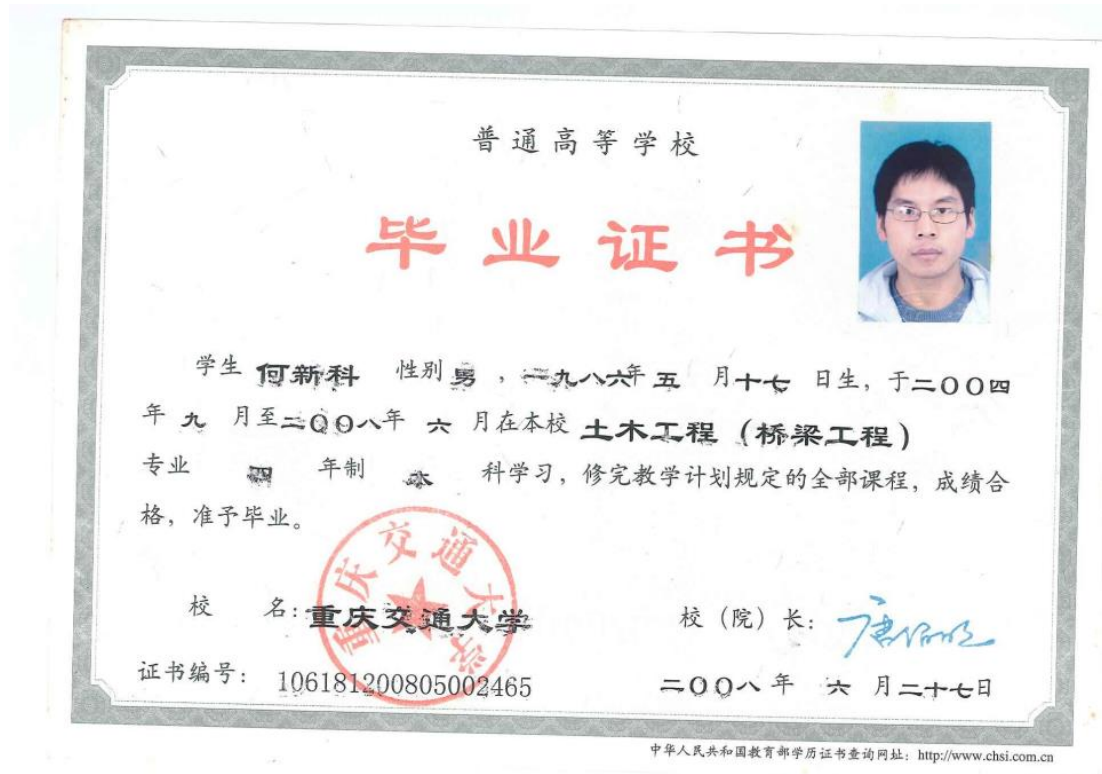 普通高等学校
毕业证书
学生 何新科 性别 男 , 一九八六年 五 月十七 日生, 于二〇〇四
年 九 月至二〇〇八年 六 月在本校 土木工程（桥梁工程）
专业 四 年制 本 科学习, 修完教学计划规定的全部课程, 成绩合
格, 准予毕业。
重庆交通大学
校 名: 重庆交通大学 校（院）长: 唐伯明
证书编号: 106181200805002465 二〇〇八 年 六 月二十七日
中华人民共和国教育部学历证书查询网址: http://www.chsi.com.cn